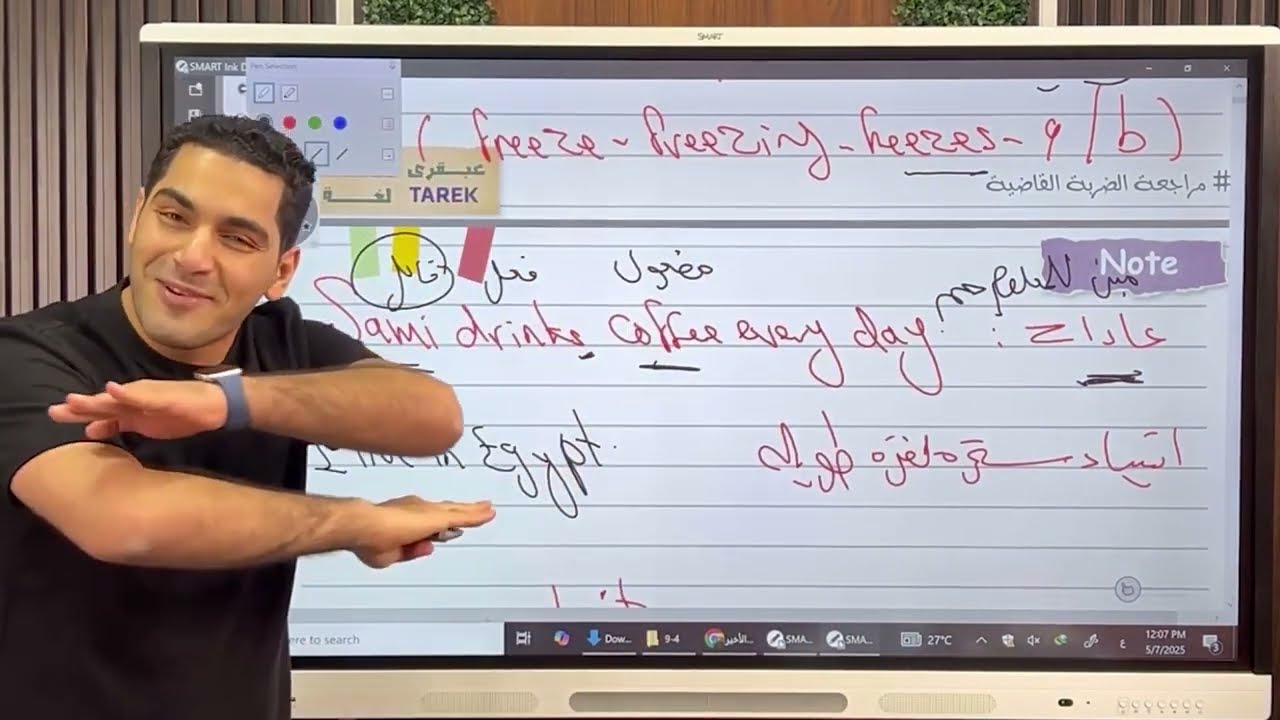 SMART
SMART Ink D
Pen Selection
( freeze - freezing - freezes - و / b )
عبقرى
لغة TAREK
# مراجعة الضربة القاضية
Note
فاعل فعل مفعول
Sami drinks coffee every day. : عادات
in Egypt.
ere to search
Dow...
9-4
الأخير...
SMA...
SMA...
27°C
ع
12:07 PM
5/7/2025
3